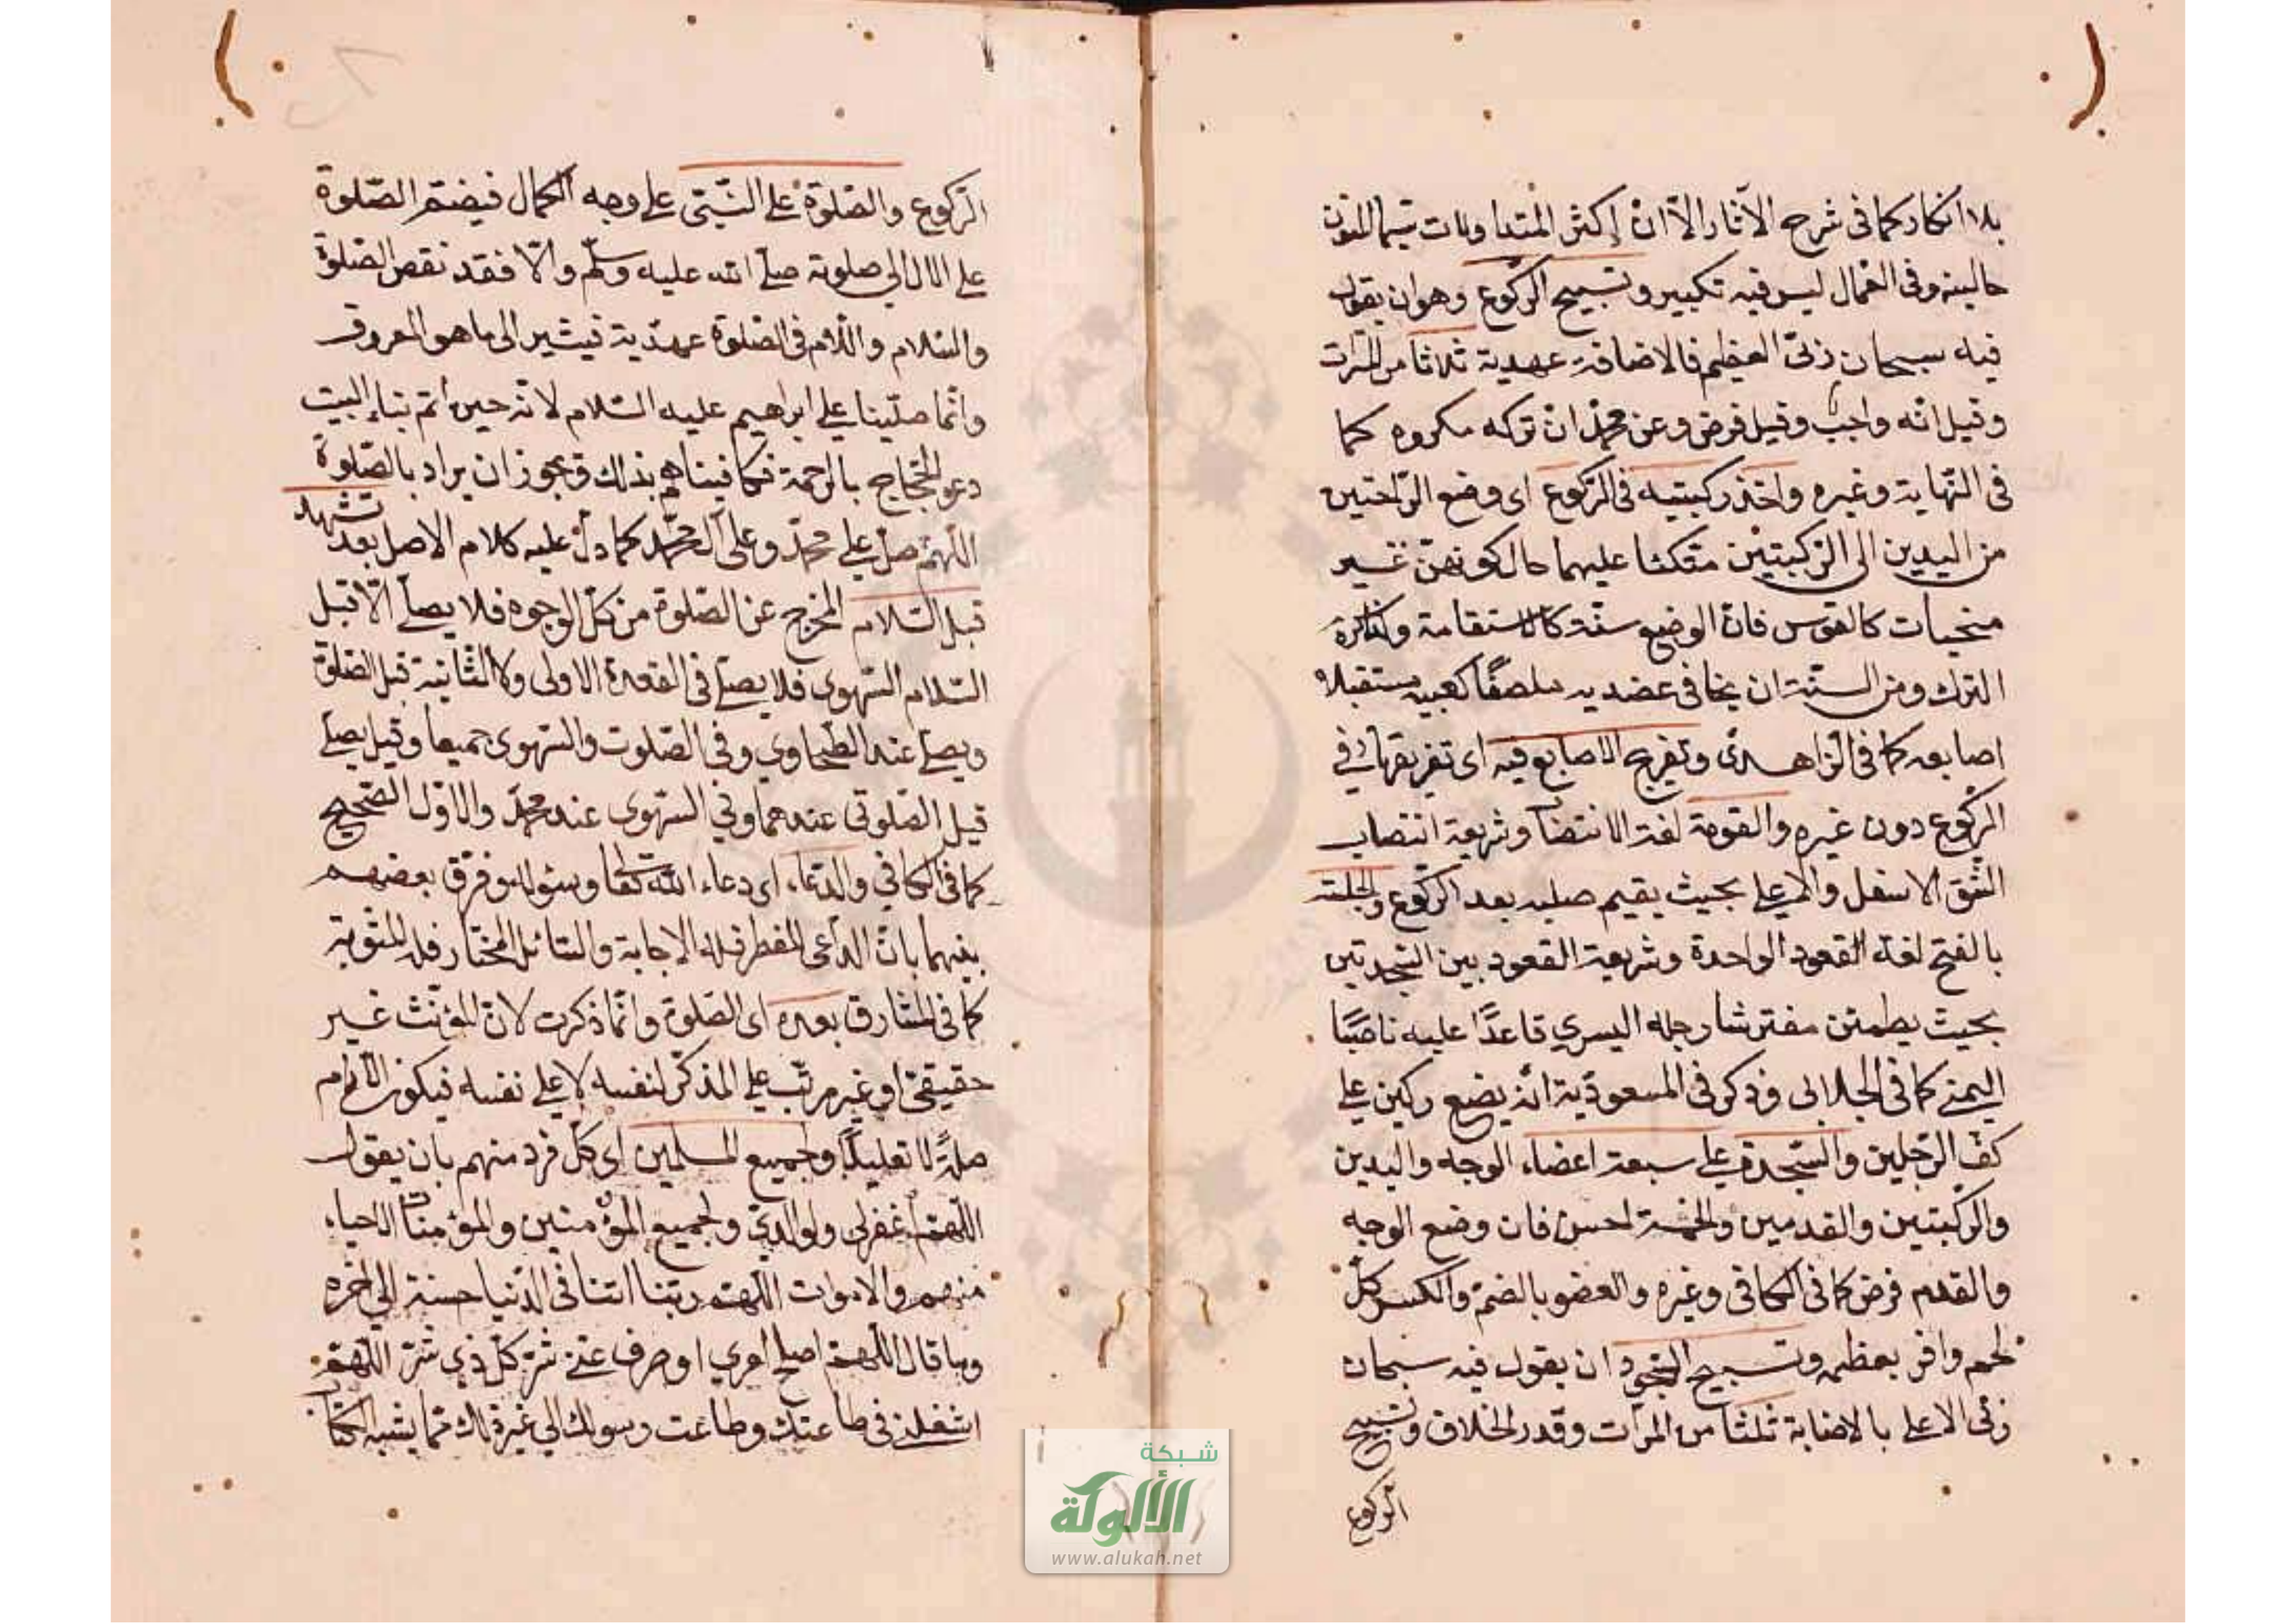 بلا انكار كما في شرح الآثار الا ان اكثر المتداولات سيما المتون
خالية وفي الغمال ليس فيه تكبير وتسبيح الركوع وهو ان يقول
فيه سبحان ربي العظيم فالاضافة عهدية ثلاثا من المرات
وقيل انه واجب وقيل فرض وعن محمد ان تركه مكروه كما
في النهاية وغيره واخذ ركبتيه في الركوع اى وضع الراحتين
من اليدين الى الركبتين متكئا عليهما حال كونهن غير
منحيات كالقوس فان الوضع سنة كالاستقامة
الترك ومن السنة ان يجافى عضديه ملصقا كعبيه مستقبلا
اصابعه كما في الزاهدى وتفريج الاصابع فيه اى تفريقها في
الركوع دون غيره والقومة لغة الانتصاب وشريعة انتصاب
الشق الاسفل والاعلى بحيث يقيم صلبه بعد الركوع والجلسة
بالفتح لغة القعود الواحدة وشريعة القعود بين السجدتين
بحيث يطمئن مفترشا رجله اليسرى قاعدًا عليه ناصبًا
اليمنى كما في الجلالى وذكر في المسعودية انه يضع ركبتين على
كف الرجلين والسجدة على سبعة اعضاء الوجه واليدين
والركبتين والقدمين والخمسة احسن فان وضع الوجه
والقدم فرض كما في الكافى وغيره والعضو بالضم والكسر كل
لحم وافر بعظمه وتسبيح السجود ان يقول فيه سبحان
ربى الاعلى بالاضافة ثلثا من المرات وقدر الخلاف وتسبيح
الركوع
الركوع والصلوة على النبي على وجه الكمال فيضم الصلوة
على الال الى صلوته صلى الله عليه وسلم والا فقد نقص الصلوة
والسلام واللام في الصلوة عهدية فيشير الى ما هو المعروف
وانما صلينا على ابراهيم عليه السلام لانه حين اتم بناء البيت
دعو للحجاج بالرحمة فكافيناهم بذلك ويجوز ان يراد بالصلوة
اللهم صل على محمد وعلى آل محمد كما دل عليه كلام الاصل بعد تشهد
قبل السلام المخرج عن الصلوة من كل الوجوه فلا يصلى الا قبل
السلام السهوى فلا يصلى في القعدة الاولى ولا الثانية قبل الصلوة
ويصلى عند الطحاوي وفي الصلوت والسهوى جميعا وقيل يصلى
قبل الصلوتى عندهما وفي السهوى عند محمد والاول الصحيح
كما في الكافي والدعاء اى دعاء الله تعالى وسؤاله وفرق بعضهم
بينهما بان الداعى المضطر فله الاجابة والسائل المختار فله المثوبة
كما في المشارق بعده اى الصلوة وانما ذكرت لان المؤنث غير
حقيقى او غير مرتب على المذكر لنفسه لا على نفسه فيكون اللام
صلة لا تعليلا ولجميع المسلمين اى كل فرد منهم بان يقول
اللهم اغفرلى ولوالدي ولجميع المؤمنين والمؤمنات الاحياء
منهم والاموات اللهم ربنا اتنا في الدنيا حسنة الى اخره
وبما قال اللهم اصلح امري اوصرف عنى شر كل ذي شر اللهم
اشغلنى في طاعتك وطاعت رسولك الى غير ذلك مما يشبه الكتاب
شبكة
الألوكة
www.alukah.net